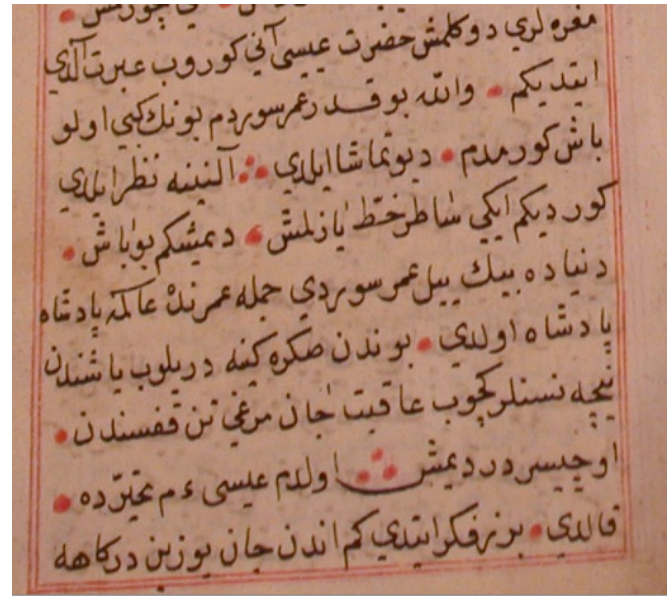 مغزه لري دوكلمش حضرت عيسى آني كوروب عبرت آلدي
ايتديكم والله بو قدر عمر سوردم بونك كبي اولو
باش كورمدم ديو تماشا ايلدي آلنينه نظر ايلدي
كورديكم ايكي شاطر خط يازلمش ديمشكم بو باش
دنياده بيك ييل عمر سوردي جمله عمرنده عالمه پادشاه
پادشاه اولدي بوندن صكره كينه دريلوب ياشندن
نيچه نسنلر كچوب عاقبت جان مرغي تن قفسندن
اوچيسر در ديمش اولدم عيسى ءم تحيرده
قالدي بر نه فكر ايتدي كم اندن جان يوزين دركاهه